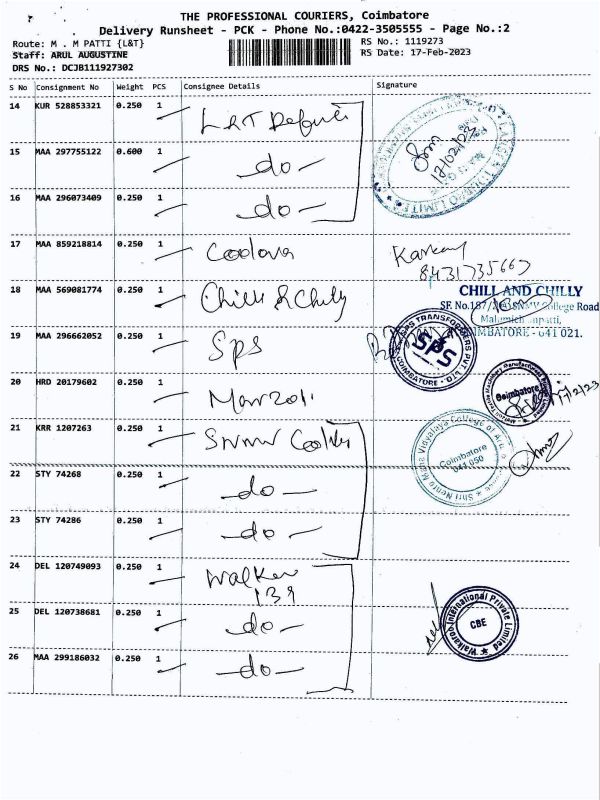 THE PROFESSIONAL COURIERS, Coimbatore
Delivery Runsheet - PCK - Phone No.:0422-3505555 - Page No.:2
Route: M . M PATTI {L&T}
RS No.: 1119273
Staff: ARUL AUGUSTINE
RS Date: 17-Feb-2023
DRS No.: DCJB111927302
S No Consignment No Weight PCS Consignee Details Signature
14 KUR 528853321 0.250 1
L&T
15 MAA 297755122 0.600 1
- do -
16 MAA 296073409 0.250 1
- do -
17 MAA 859218814 0.250 1
18 MAA 569081774 0.250 1
Chilli & Chilly
CHILL AND CHILLY
SNMV College Road
COIMBATORE - 641 021.
19 MAA 296662052 0.250 1
Sps
SPS TRANSFORMERS PVT LTD
SPS
COIMBATORE
20 HRD 20179602 0.250 1
Coimbatore
21 KRR 1207263 0.250 1
SNMV
Coimbatore
641 050
22 STY 74268 0.250 1
- do -
23 STY 74286 0.250 1
- do -
24 DEL 120749093 0.250 1
Walker
139
25 DEL 120738681 0.250 1
- do -
Walkaroo International Private Limited
CBE
26 MAA 299186032 0.250 1
- do -